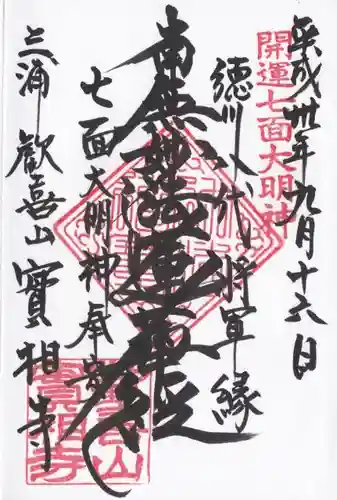 平成卅年九月十六日
開運七面大明神
徳川八代将軍縁
南無妙法蓮華経
七面大明神奉安
三浦 歓喜山 實相寺
歓喜山
實相寺